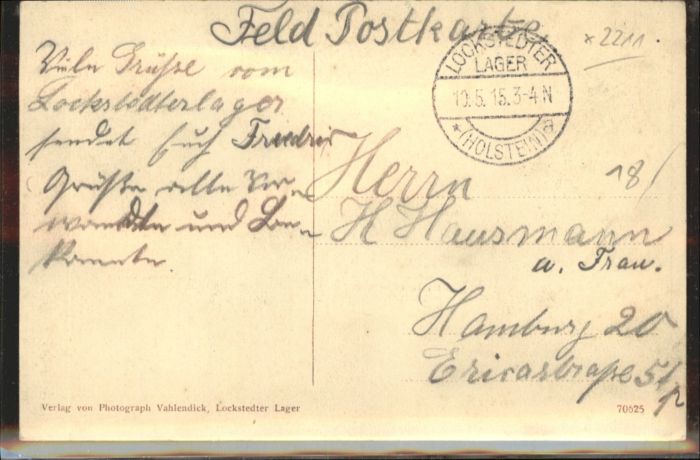 Feld Postkarte
*2211
LOCKSTEDTER
LAGER
10.5.15.3-4 N
* (HOLSTEIN) a
Viele Grüße vom
Lockstedterlager
sendet Euch Friedrich
Grüße alle Ver-
wandte und Be-
kannte
18/
Herrn
H Hausmann
u. Frau.
Hamburg 20
Ericastraße 51
Verlag von Photograph Vahlendick, Lockstedter Lager
70625